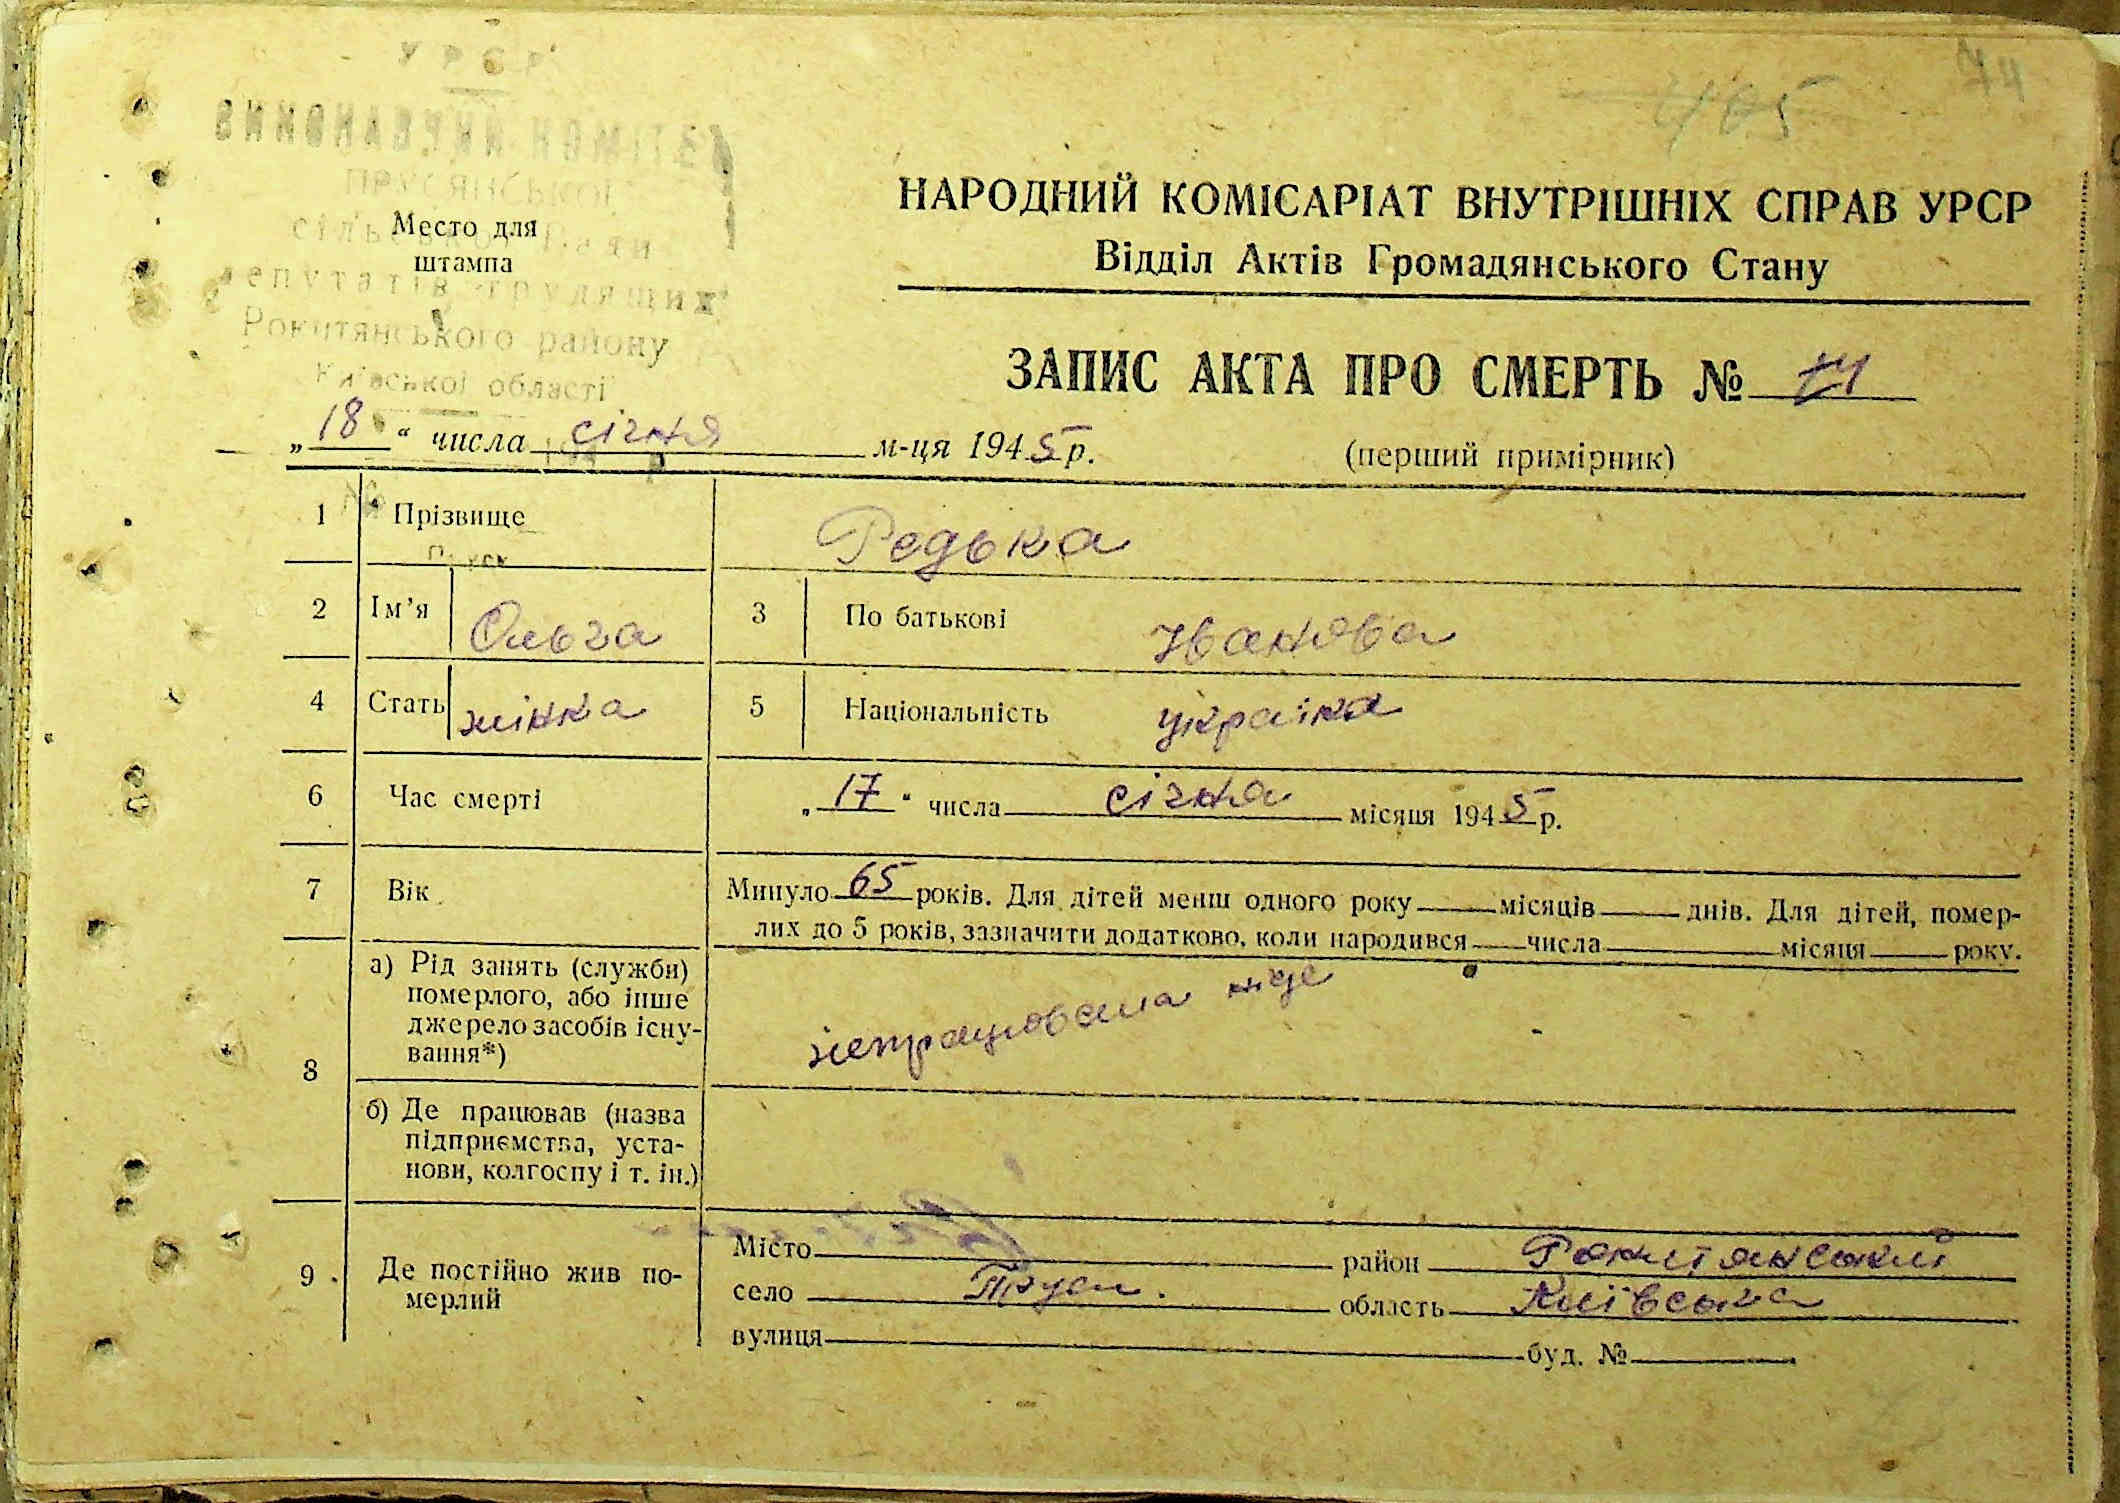 УРСР
74
465
ВИКОНАВЧИЙ КОМІТЕТ
сільської Ради
депутатів трудящих
Рокитянського району
Київської області
Место для
штампа
НАРОДНИЙ КОМІСАРІАТ ВНУТРІШНІХ СПРАВ УРСР
Відділ Актів Громадянського Стану
ЗАПИС АКТА ПРО СМЕРТЬ №
„18“ числа січня м-ця 1945 р.
(перший примірник)
1 Прізвище Редька
2 Ім’я Ольга 3 По батькові Іванова
4 Стать жінка 5 Національність українка
6 Час смерті „17“ числа січня місяця 1945 р.
7 Вік Минуло 65 років. Для дітей менш одного року місяців днів. Для дітей, помер-
лих до 5 років, зазначити додатково, коли народився числа місяця року.
8 а) Рід занять (служби)
померлого, або інше
джерело засобів існу-
вання*)
непрацювала ніде
б) Де працював (назва
підприємства, уста-
нови, колгоспу і т. ін.)
9 Де постійно жив по-
мерлий
Місто район Рокитянський
село область Київська
вулиця буд. №